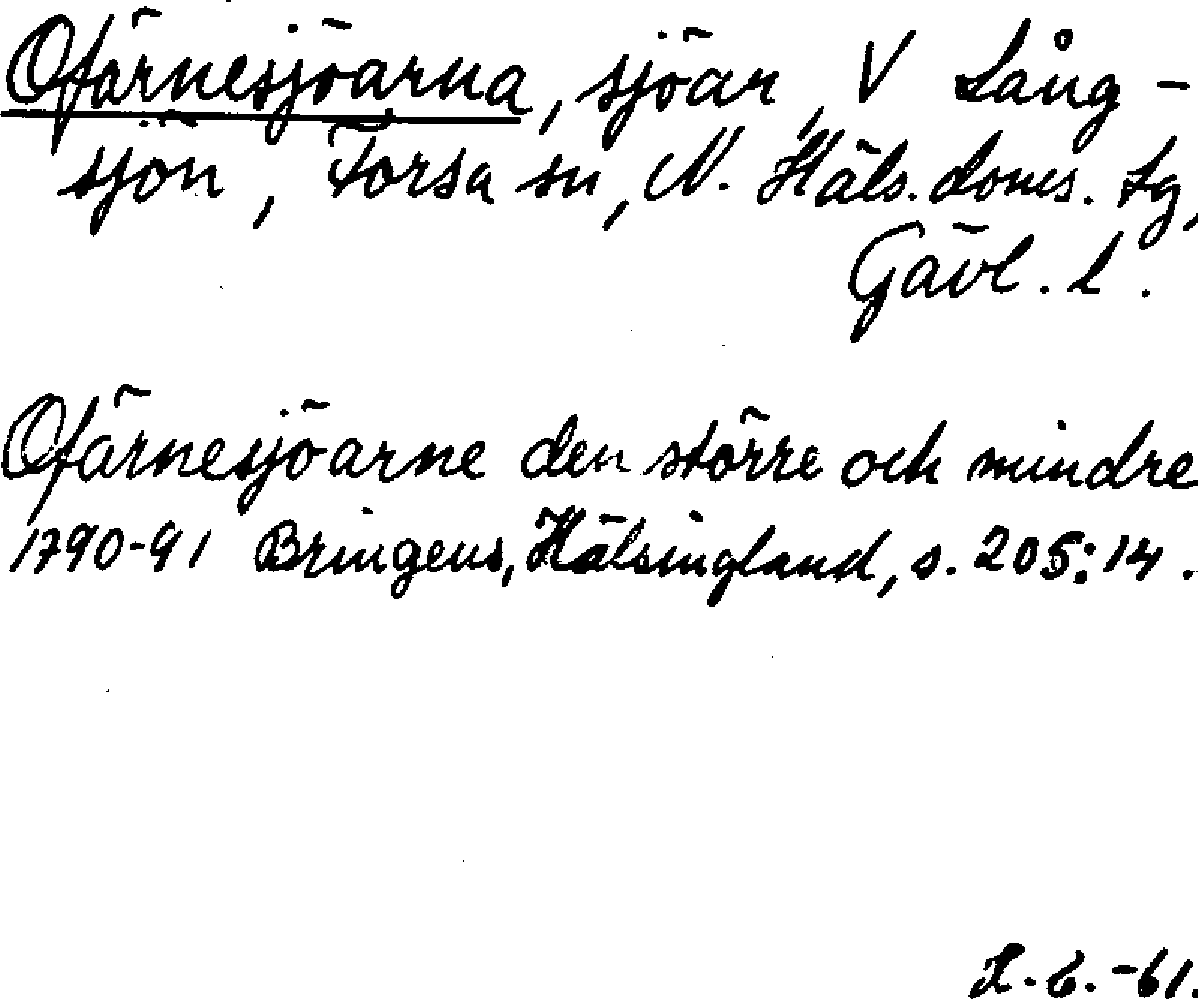 Ofärnesjöarna, sjöar, V Lång-
sjön, Forsa sn, N. Häls. doms. tg,
Gävl. l.
Ofärnesjöarne den större och mindre
1790-91 Bringeus, Hälsingland, s. 205:14.
-61.